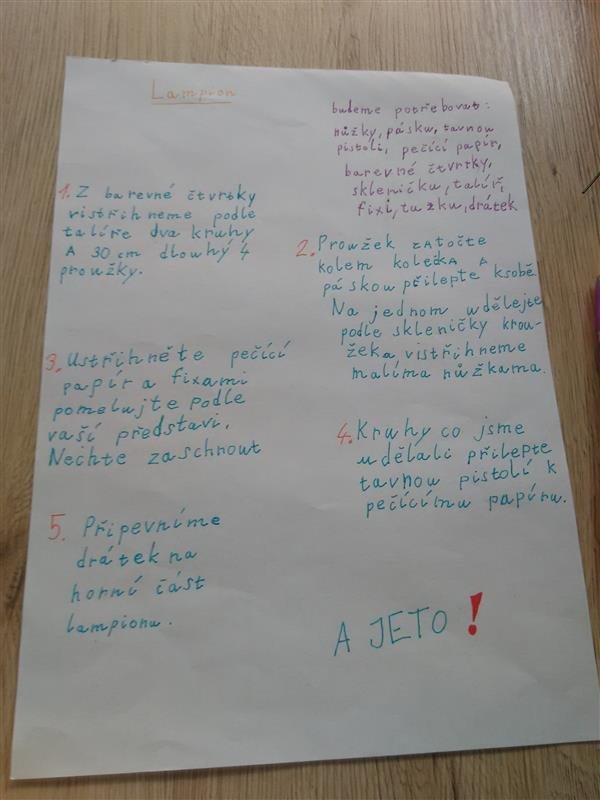 Lampion
budeme potřebovat:
nůžky, pásku, tavnou
pistoli, pečící papír,
barevné čtvrtky,
skleničku, talíř,
fixi, tužku, drátek
1. Z barevné čtvrtky
vistřihneme podle
talíře dva kruhy
A 30 cm dlouhý 4
proužky.
2. Proužek zAtočte
kolem kolečkA A
páskou přilepte ksobě.
Na jednom udělejte
podle skleničky krou-
žek a vistřihneme
malíma nůžkama.
3. Ustřihněte pečící
papír a fixami
pomalujte podle
vaší představi.
Nechte zaschnout
4. Kruhy co jsme
udělali přilepte
tavnou pistolí k
pečícímu papíru.
5. Připevníme
drátek na
horní část
lampionu.
A JETO!